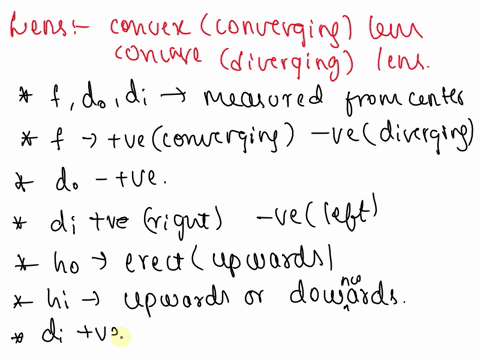 Lens:- convex (converging) lens
concave (diverging) lens.
* f, do, di → measured from center
* f → +ve (converging) -ve (diverging)
* do - +ve.
* di +ve (right) -ve (left)
* ho → erect (upwards)
* hi → upwards or downwards.
* di +ve